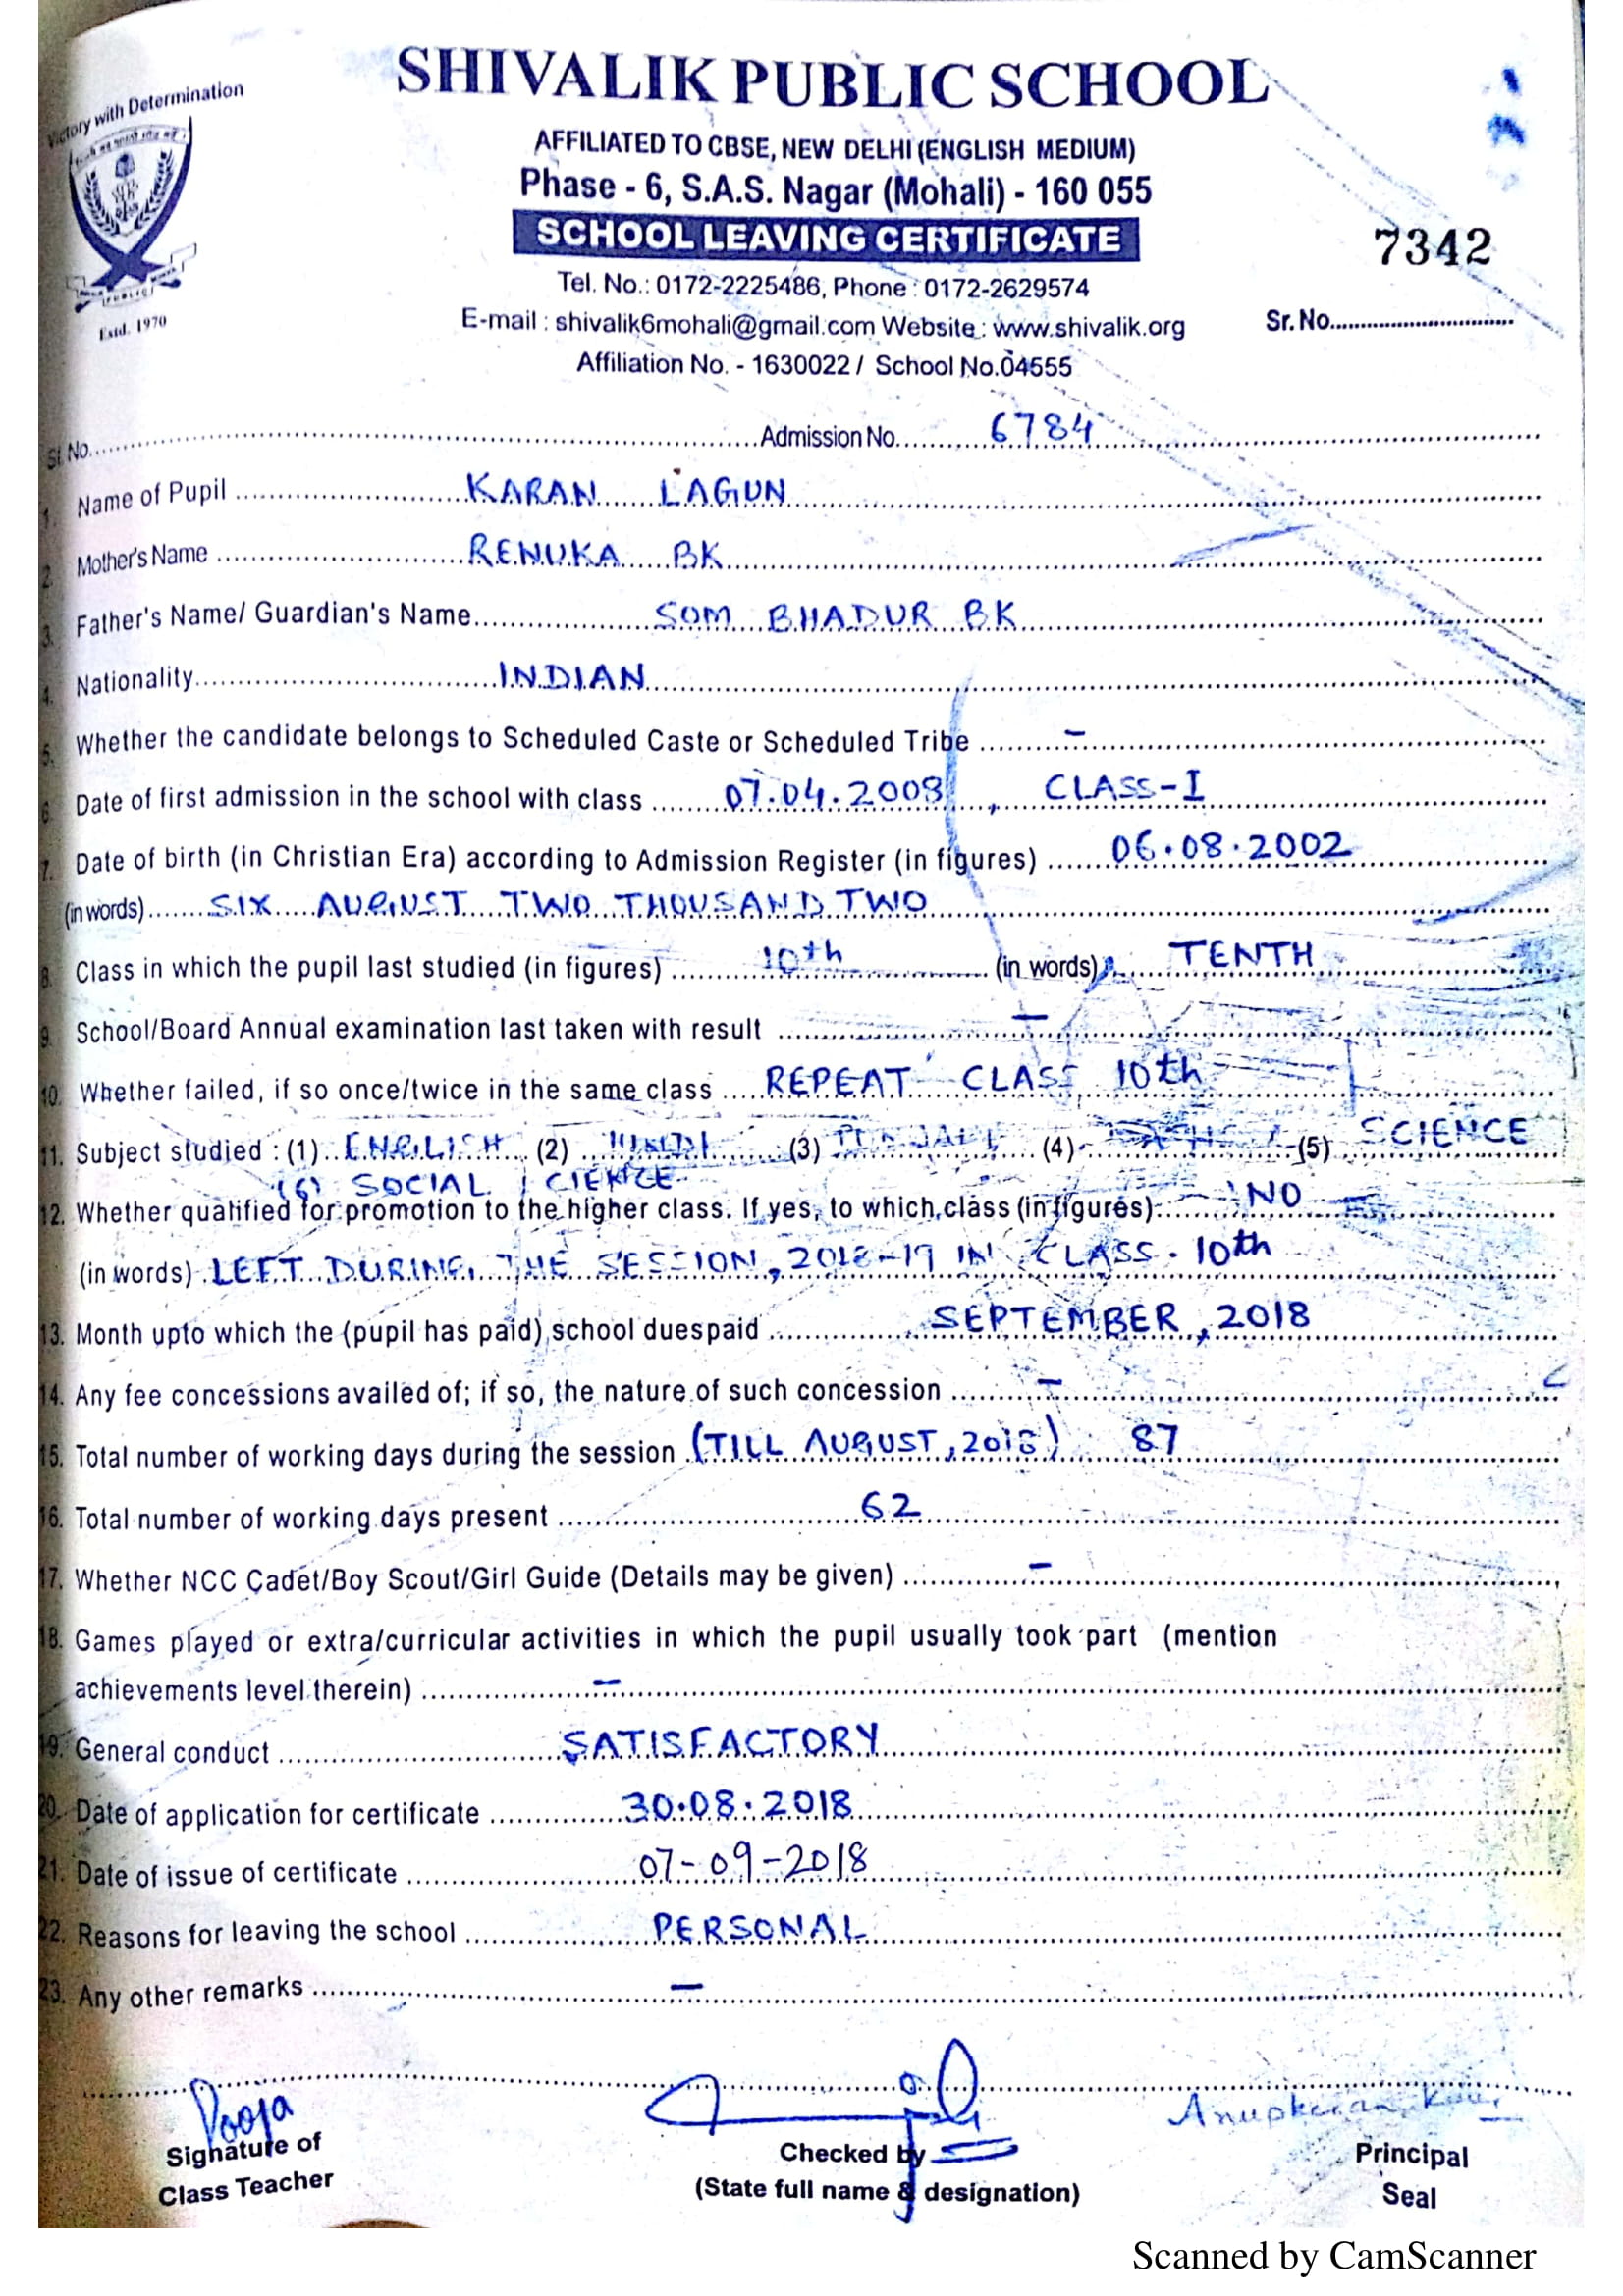 Victory with Determination
SHIVALIK PUBLIC SCHOOL
AFFILIATED TO CBSE, NEW DELHI (ENGLISH MEDIUM)
Phase - 6, S.A.S. Nagar (Mohali) - 160 055
SCHOOL LEAVING CERTIFICATE
7342
Tel. No.: 0172-2225486, Phone : 0172-2629574
E-mail : shivalik6mohali@gmail.com Website : www.shivalik.org
Sr. No.
PUBLIC
Estd. 1970
Affiliation No. - 1630022 / School No.04555
Sl. No. Admission No. 6784
1. Name of Pupil KARAN LAGUN
2. Mother's Name RENUKA BK
3. Father's Name/ Guardian's Name SOM BHADUR BK
4. Nationality INDIAN
5. Whether the candidate belongs to Scheduled Caste or Scheduled Tribe –
6. Date of first admission in the school with class 07.04.2008, CLASS-I
7. Date of birth (in Christian Era) according to Admission Register (in figures) 06.08.2002
(in words) SIX AUGUST TWO THOUSAND TWO
8. Class in which the pupil last studied (in figures) 10th (in words) TENTH
9. School/Board Annual examination last taken with result –
10. Whether failed, if so once/twice in the same class REPEAT CLASS 10th
11. Subject studied : (1) ENGLISH (2) HINDI (3) PUNJABI (4) (5) SCIENCE
(6) SOCIAL SCIENCE
12. Whether qualified for promotion to the higher class. If yes, to which class (in figures) NO
(in words) LEFT DURING THE SESSION, 2018-19 IN CLASS. 10th
13. Month upto which the (pupil has paid) school duespaid SEPTEMBER, 2018
14. Any fee concessions availed of; if so, the nature of such concession –
15. Total number of working days during the session (TILL AUGUST, 2018) 87
16. Total number of working days present 62
17. Whether NCC Cadet/Boy Scout/Girl Guide (Details may be given) –
18. Games played or extra/curricular activities in which the pupil usually took part (mention
achievements level therein) –
19. General conduct SATISFACTORY
20. Date of application for certificate 30.08.2018
21. Date of issue of certificate 07-09-2018
22. Reasons for leaving the school PERSONAL
23. Any other remarks –
Pooja
Signature of
Class Teacher
Checked by
(State full name & designation)
Principal
Seal
Scanned by CamScanner